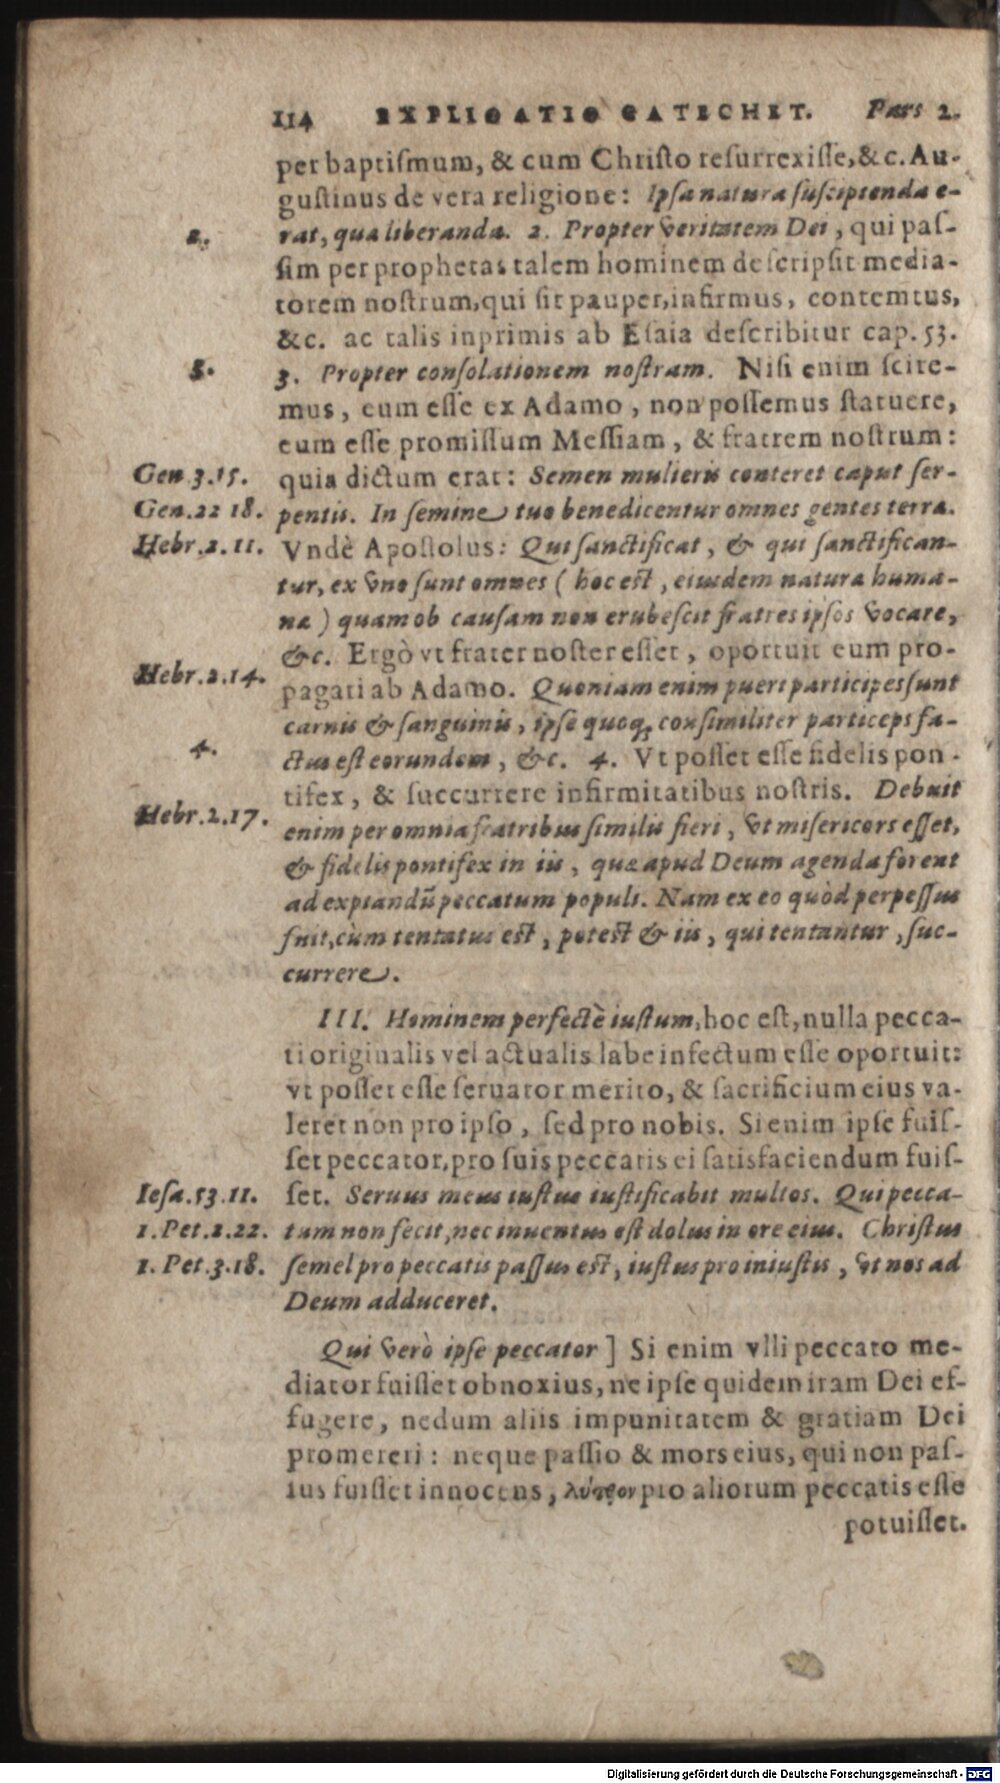 114 EXPLICATIO CATECHET. Pars 2.
per baptiſmum, & cum Chriſto reſurrexiſſe, &c. Au-
guſtinus de vera religione: Ipſa natura ſuſcipienda e-
2. rat, quæ liberanda. 2. Propter veritatem Dei, qui paſ-
ſim per prophetas talem hominem deſcripſit media-
torem noſtrum, qui ſit pauper, infirmus, contemtus,
&c. ac talis inprimis ab Eſaia deſcribitur cap. 53.
3. 3. Propter conſolationem noſtram. Niſi enim ſcire-
mus, eum eſſe ex Adamo, non poſſemus ſtatuere,
eum eſſe promiſſum Meſſiam, & fratrem noſtrum:
Gen. 3.15. quia dictum erat: Semen mulieris conteret caput ſer-
Gen. 22 18. pentis. In ſemine tuo benedicentur omnes gentes terra.
Hebr. 2. 11. Vndè Apoſtolus: Qui ſanctificat, & qui ſanctifican-
tur, ex vno ſunt omnes ( hoc eſt, eiusdem natura huma-
na ) quam ob cauſam non erubeſcit fratres ipſos vocare,
&c. Ergò vt frater noſter eſſet, oportuit eum pro-
Hebr. 2.14. pagari ab Adamo. Quoniam enim pueri participes ſunt
carnis & ſanguinis, ipſe quoq; conſimiliter particeps fa-
4. ctus eſt eorundem, &c. 4. Vt poſſet eſſe fidelis pon-
tifex, & ſuccurrere infirmitatibus noſtris. Debuit
Hebr. 2.17. enim per omnia fratribus ſimilis fieri, vt miſericors eſſet,
& fidelis pontifex in iis, quæ apud Deum agenda forent
ad expiandũ peccatum populi. Nam ex eo quòd perpeſſus
fuit, cùm tentatus eſt, poteſt & iis, qui tentantur, ſuc-
currere.
III. Hominem perfectè iuſtum, hoc eſt, nulla pecca-
ti originalis vel actualis labe infectum eſſe oportuit:
vt poſſet eſſe ſeruator merito, & ſacrificium eius va-
leret non pro ipſo, ſed pro nobis. Si enim ipſe fuiſ-
ſet peccator, pro ſuis peccatis ei ſatisfaciendum fuiſ-
Ieſa. 53. 11. ſet. Seruus meus iuſtus iuſtificabit multos. Qui pecca-
1. Pet. 2. 22. tum non fecit, nec inuentus eſt dolus in ore eius. Chriſtus
1. Pet. 3. 18. ſemel pro peccatis paſſus eſt, iuſtus pro iniuſtis, vt nos ad
Deum adduceret.
Qui verò ipſe peccator ] Si enim vlli peccato me-
diator fuiſſet obnoxius, ne ipſe quidem iram Dei ef-
fugere, nedum aliis impunitatem & gratiam Dei
promereri: neque paſſio & mors eius, qui non paſ-
ſus fuiſſet innocens, λύτρον pro aliorum peccatis eſſe
potuiſſet.
Digitalisierung gefördert durch die Deutsche Forschungsgemeinschaft - DFG